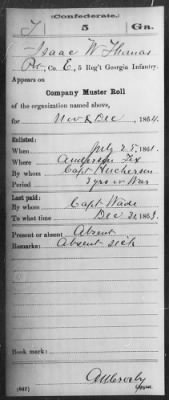 (Confederate.)
T 5 Ga.
Isaac W Thomas
Pvt, Co. E, 5 Reg't Georgia Infantry.
Appears on
Company Muster Roll
of the organization named above,
for Nov & Dec, 1864.
Enlisted:
When July 25, 1861.
Where Anderson
By whom Capt
Period 3 yrs or War
Last paid:
By whom Capt Wade
To what time Dec 31, 1863.
Present or absent Absent
Remarks: Absent sick
Book mark:
(642)
Copyist.